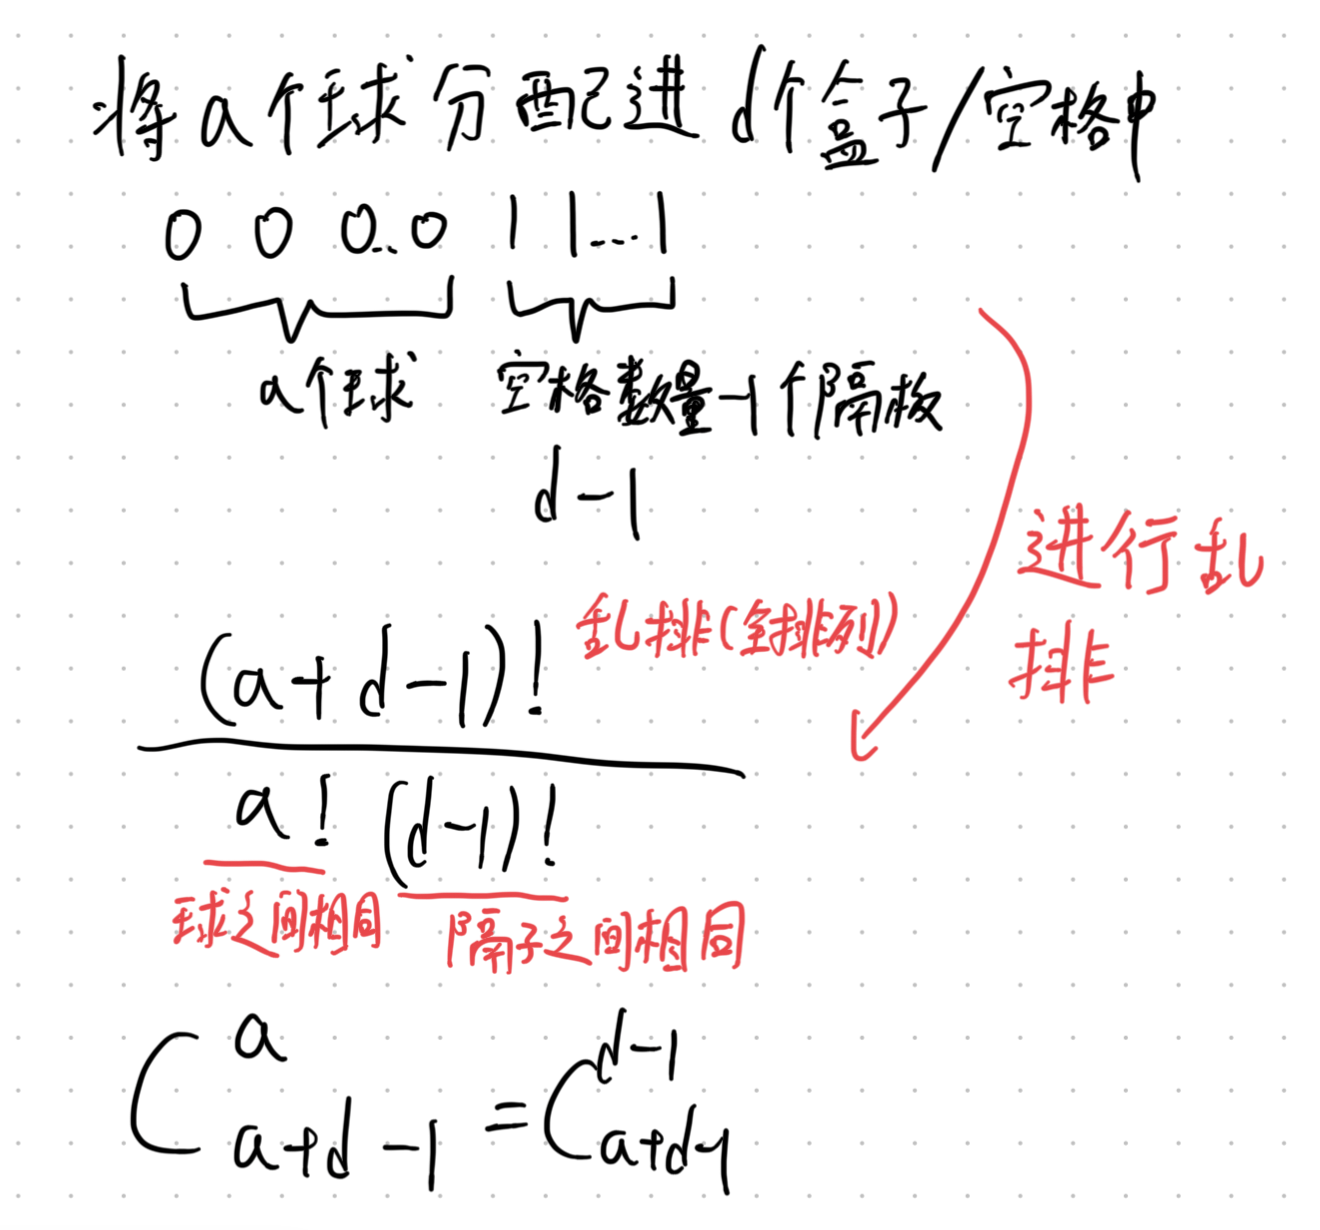 将a个球分配进d个盒子/空格中
0 0 0..0 1 1...1
a个球 空格数量-1个隔板
d-1
进行乱
排
乱排(全排列)
(a+d-1)!
a! (d-1)!
球之间相同 隔子之间相同
C^a_{a+d-1} = C^{d-1}_{a+d-1}